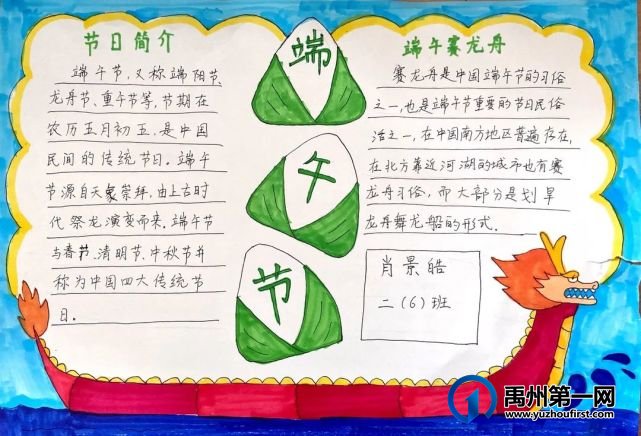 节日简介
端午节,又称端阳节、
龙舟节、重午节等,节期在
农历五月初五,是中国
民间的传统节日。端午
节源自天象崇拜,由上古时
代祭龙演变而来。端午节
与春节、清明节、中秋节并
称为中国四大传统节
日。
端
午
节
端午赛龙舟
赛龙舟是中国端午节的习俗
之一,也是端午节重要的节日民俗
活之一,在中国南方地区普遍存在,
在北方靠近河湖的城市也有赛
龙舟习俗,而大部分是划旱
龙舟舞龙船的形式.
肖景皓
二(6)班
禹州第一网
www.yuzhoufirst.com